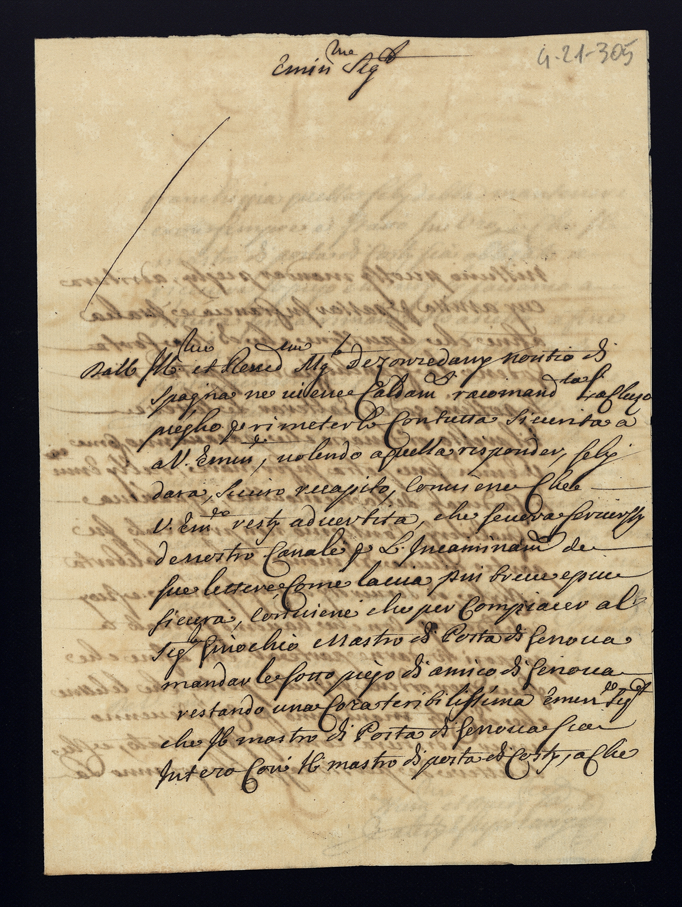 4-21-305
Emin.me Sig.r
Dall Ill.mo et Rever.mo Mg.r Dezonredany nontio di
Spagna ne viene Caldam.te racomand.ta
piegho p rimeterlo Con tutta sicurita a
a V. Emin.a, volendo a quella risponder, seli
dara, sicuro recapito, Conviene Che
V. Em.a resti advertita, che se vora servirsi
de nostro Canale p L'Incaminam.to de
sue lettere Come la via piu breve e piu
sicura, Conviene che per Compiacer al
Sig.r Finochio Mastro di Posta di Genova
mandar le sotto piego di amico di Genova
restando una Cora teribilissima Emin.mo Sig.r
che Il mastro di Posta di Genova sia
Intero Con Il mastro di posta di Costi, a Che